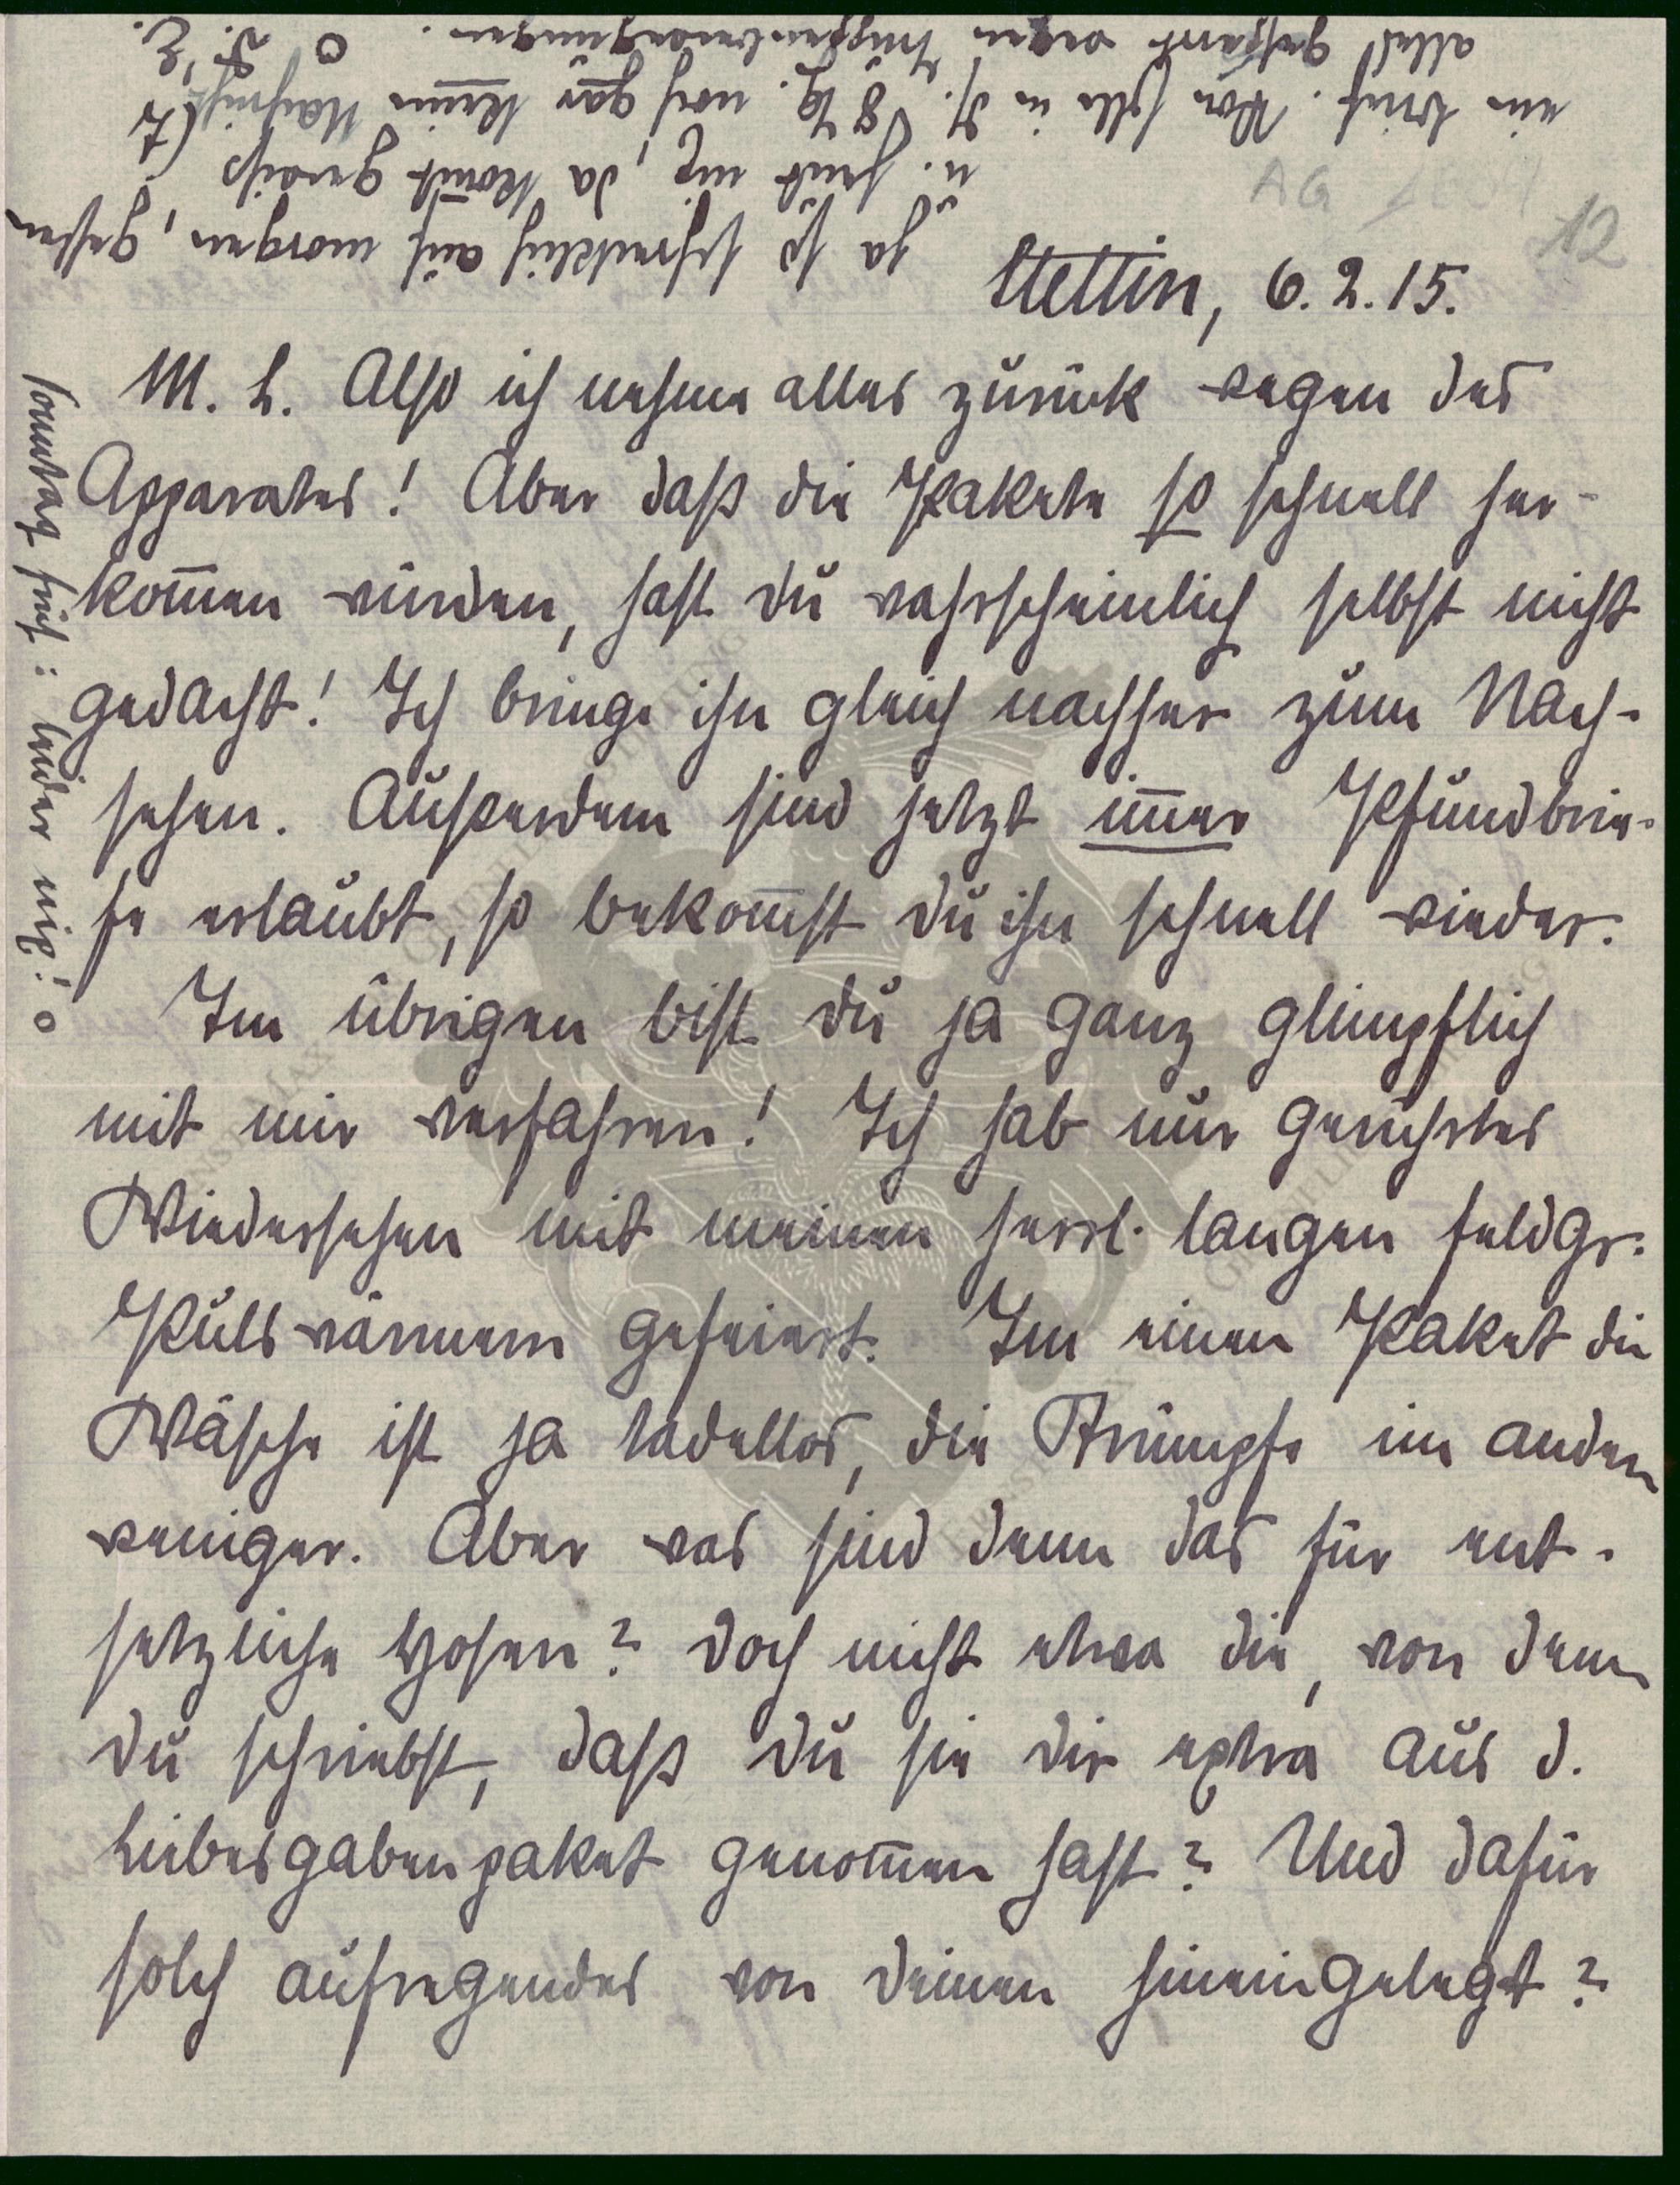 Stettin, 6.2.15.
M. L. Also ich nehme alles zurück wegen des
Apparates! Aber daß die Pakete so schnell her-
kom̄en würden, hast du wahrscheinlich selbst nicht
gedacht! Ich bringe ihn gleich nachher zum Nach-
sehen. Außerdem sind jetzt im̄er Pfundbrie-
fe erlaubt, so bekom̄st du ihn schnell wieder.
Im übrigen bist du ja ganz glimpflich
mit mir verfahren! Ich hab nur gerührtes
Wiedersehen mit meinen herrl. langen feldgr.
Pulswärmern gefeiert. Im einen Paket die
Wäsche ist ja tadellos, die Strümpfe im andern
weniger. Aber was sind denn das für ent-
setzliche Hosen? Doch nicht etwa die, von denen
du schriebst, daß du sie dir extra aus d.
Liebesgabenpaket genom̄en hast? Und dafür
solch aufregendes von deinen hineingelegt?
ja so schrecklich auf morgen, gestern
u. heut nix, da kom̄t gewiss
ein Brief. Vor 8 Tg. noch gar keine Nachricht
alles gesperrt wegen Truppenbewegungen.
Sonntag früh: leider nix!
AG
12